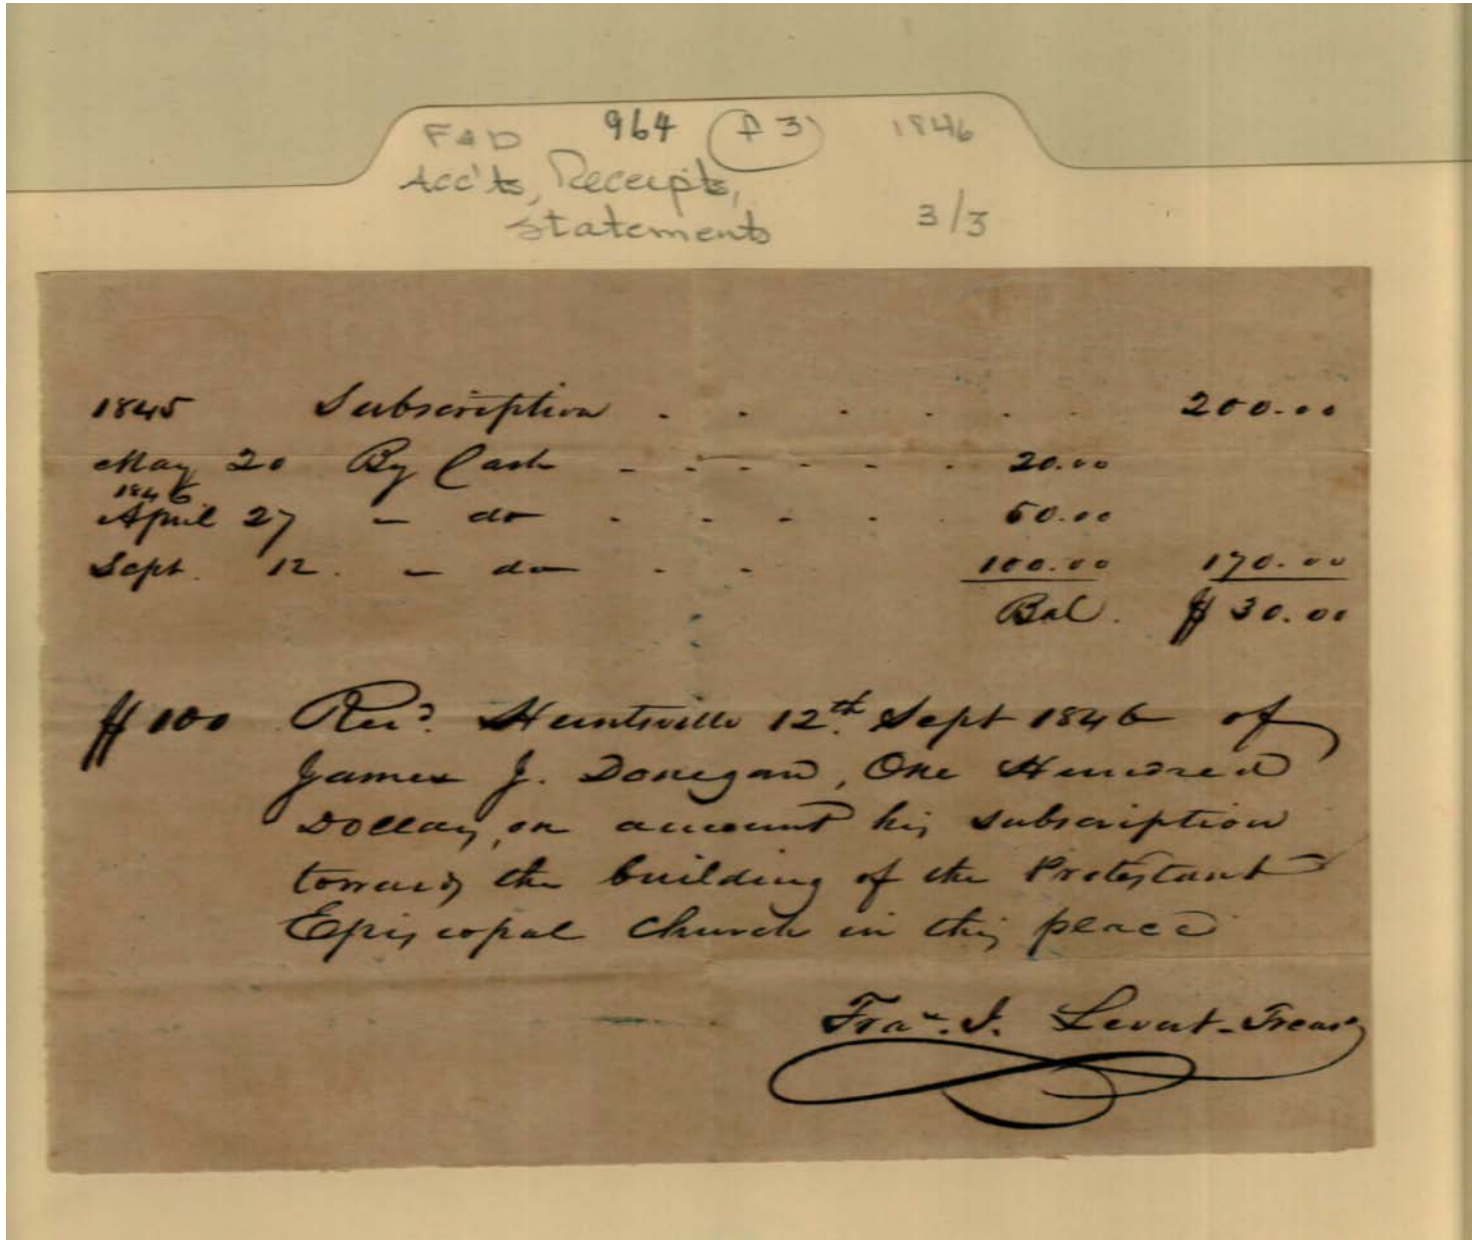 FAD 964 (f 3) 1846
Acc'ts, Receipts,
Statements 3/3
1845 Subscription . . . . . . 200.00
May 20 By Cash - - - - - . 20.00
1846
April 27 - do . - - - . . 50.00
Sept. 12. - do - . . 100.00 170.00
Bal. $ 30.00
$ 100 Recd. Huntsville 12th Sept 1846 of
James J. Donegan, One Hundred
Dollars, on account his subscription
towards the building of the Protestant
Episcopal Church in this place
Fras. J. Levert - Treasr